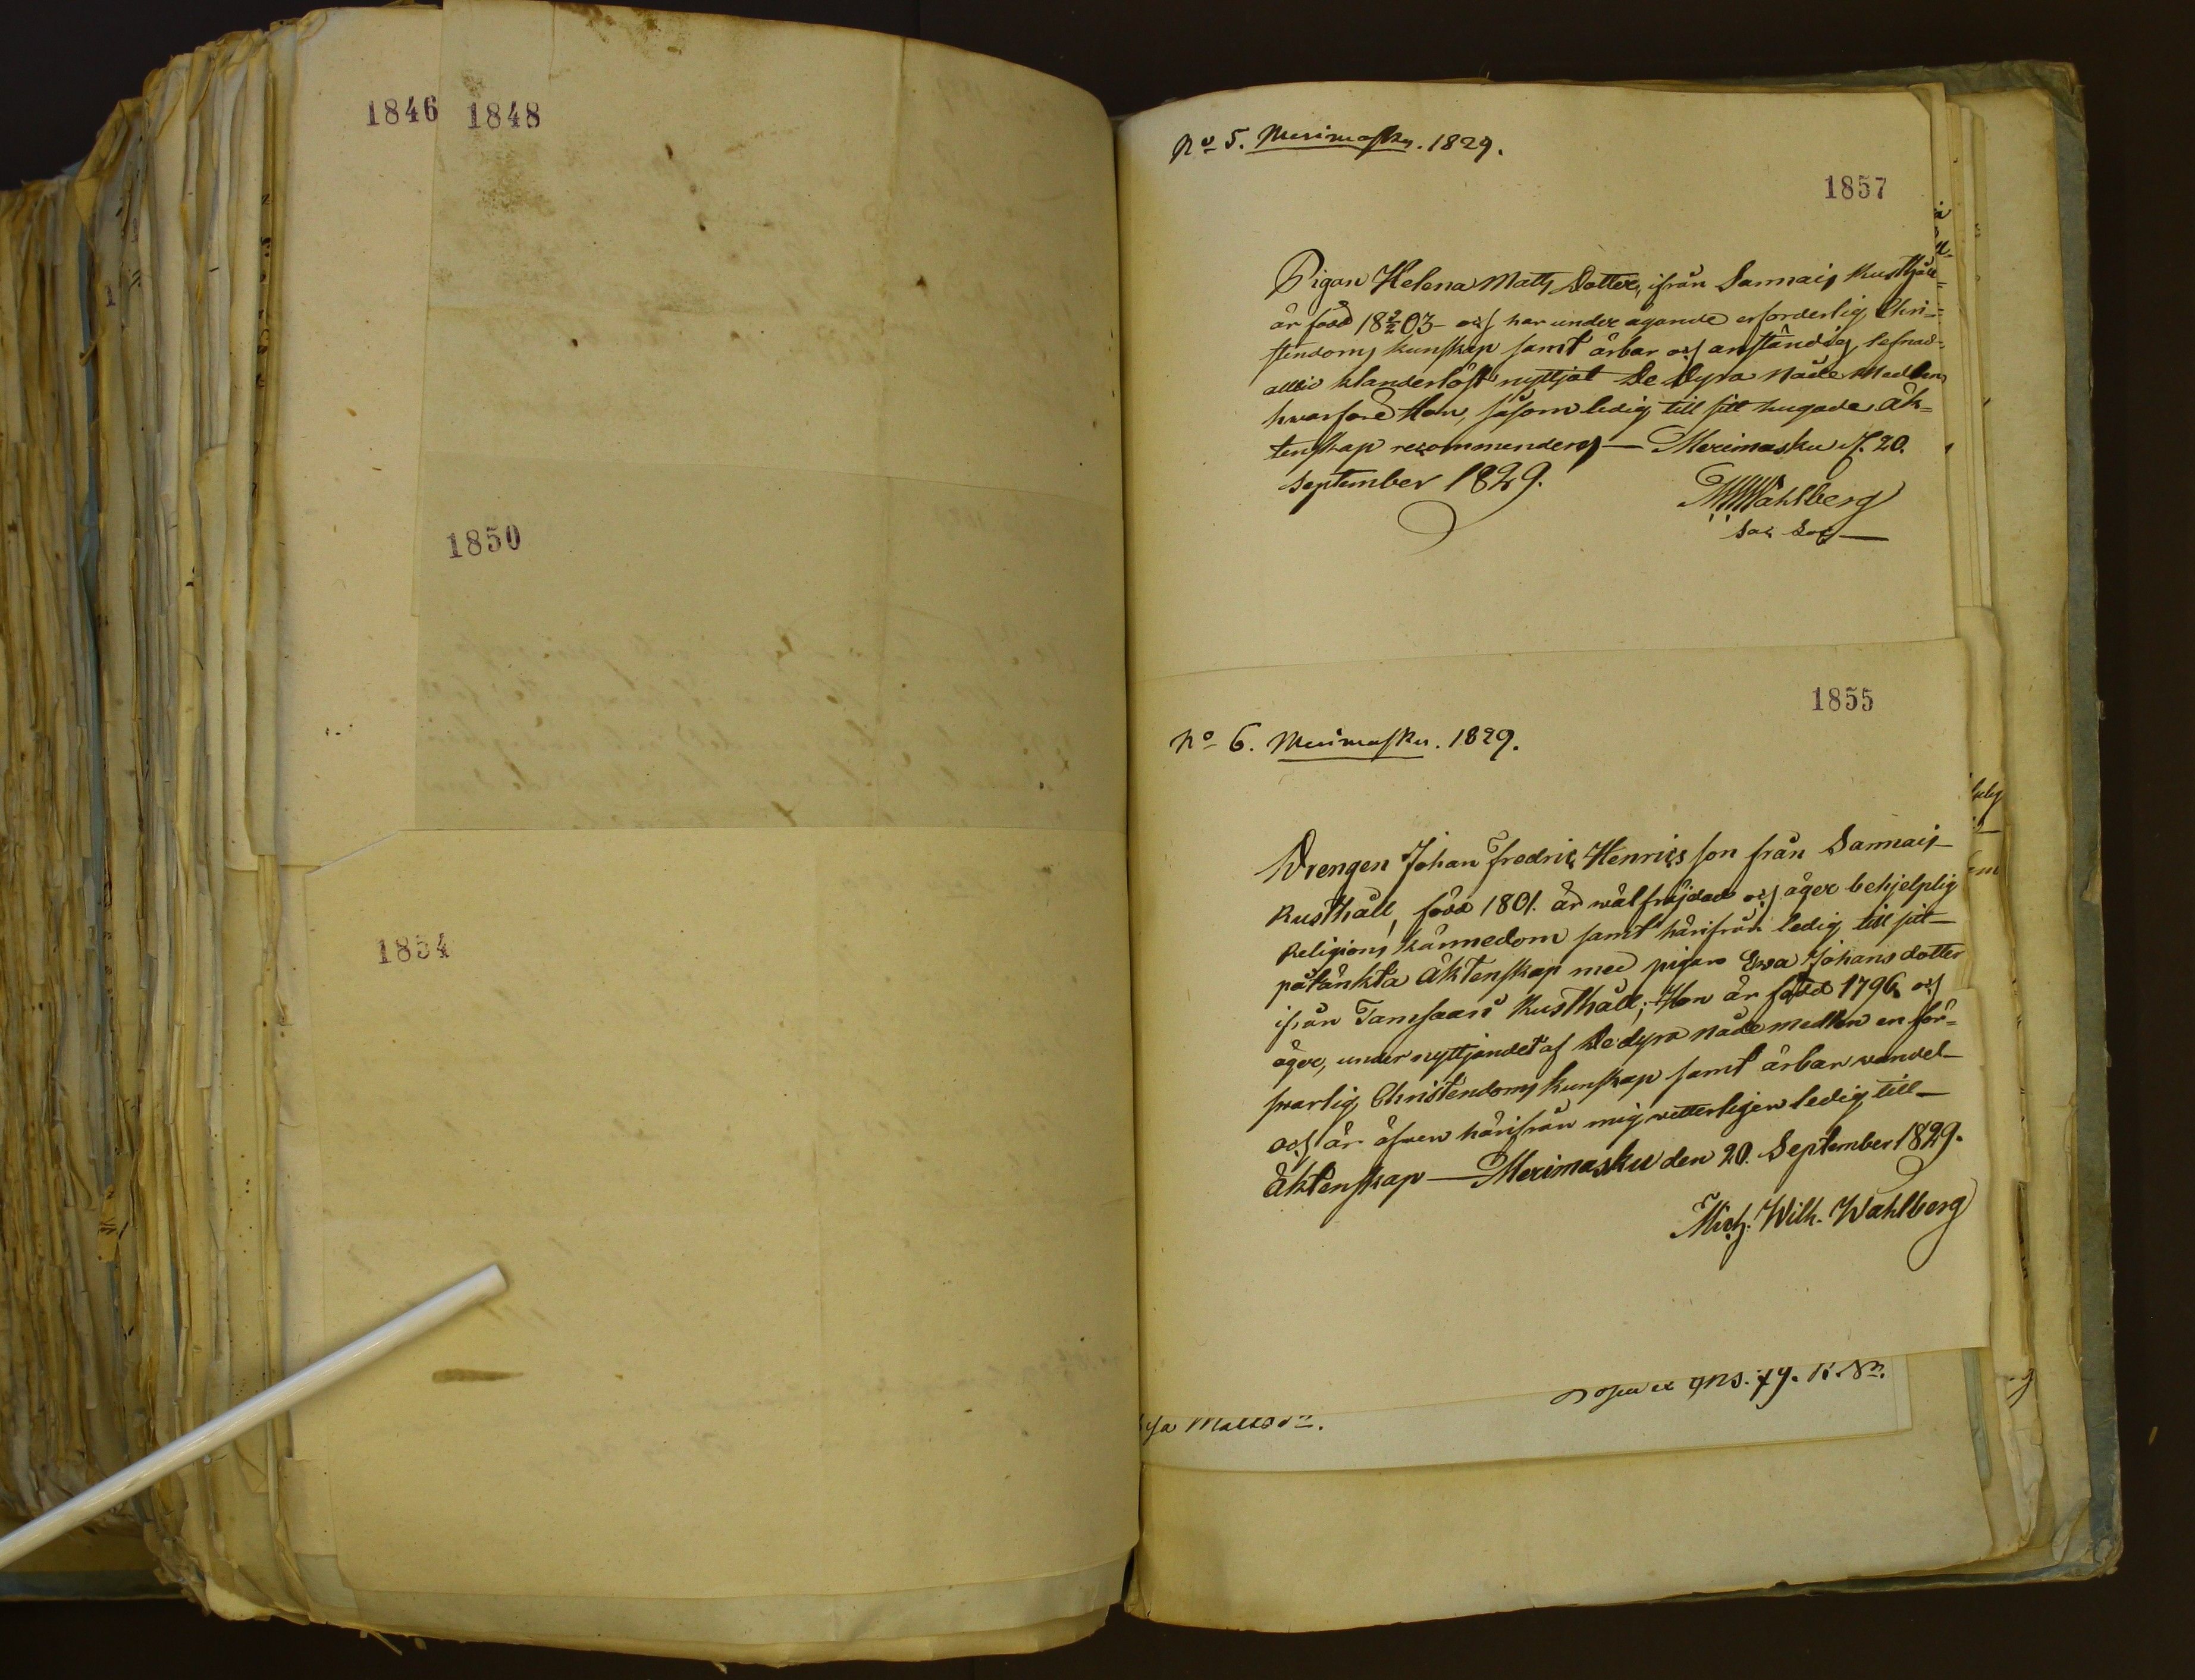 1846 1848
1850
1854
No 5. Merimasku. 1829.
1857
Pigan Helena Matts Dotter, ifrån Sannais Rusthåll
är född 18 2/2 03 och har under ägande erforderlig Chri=
stendoms kunskap samt ärbar och anständig lefnad=
alltid klanderlöst nyttjat De Dyra Nåde Medlen
hvarföre Hon, såsom ledig till sitt hugade Äk=
tenskap recommenderas — Merimasku d. 20.
September 1829.
MWWahlberg
Sac
1855
No 6. Merimasku. 1829.
Drengen Johan Fredric Henrics son från Sannais
Rusthåll, född 1801. är wälfrejdad och äger behjelplig
Religions kännedom samt härifrån ledig till sitt
påtänkta Äktenskap med pigan Ewa Johans dotter
ifrån Tamsaari Rusthåll; Hon är född 1796 och
äger, under nyttjandet af De dyra nåde medlen en för=
svarlig Christendoms kunskap samt ärbar vandel
och är äfven härifrån mig vetterligen ledig till
Äktenskap — Merimasku den 20. September 1829.
Mich. Wilh. Wahlberg